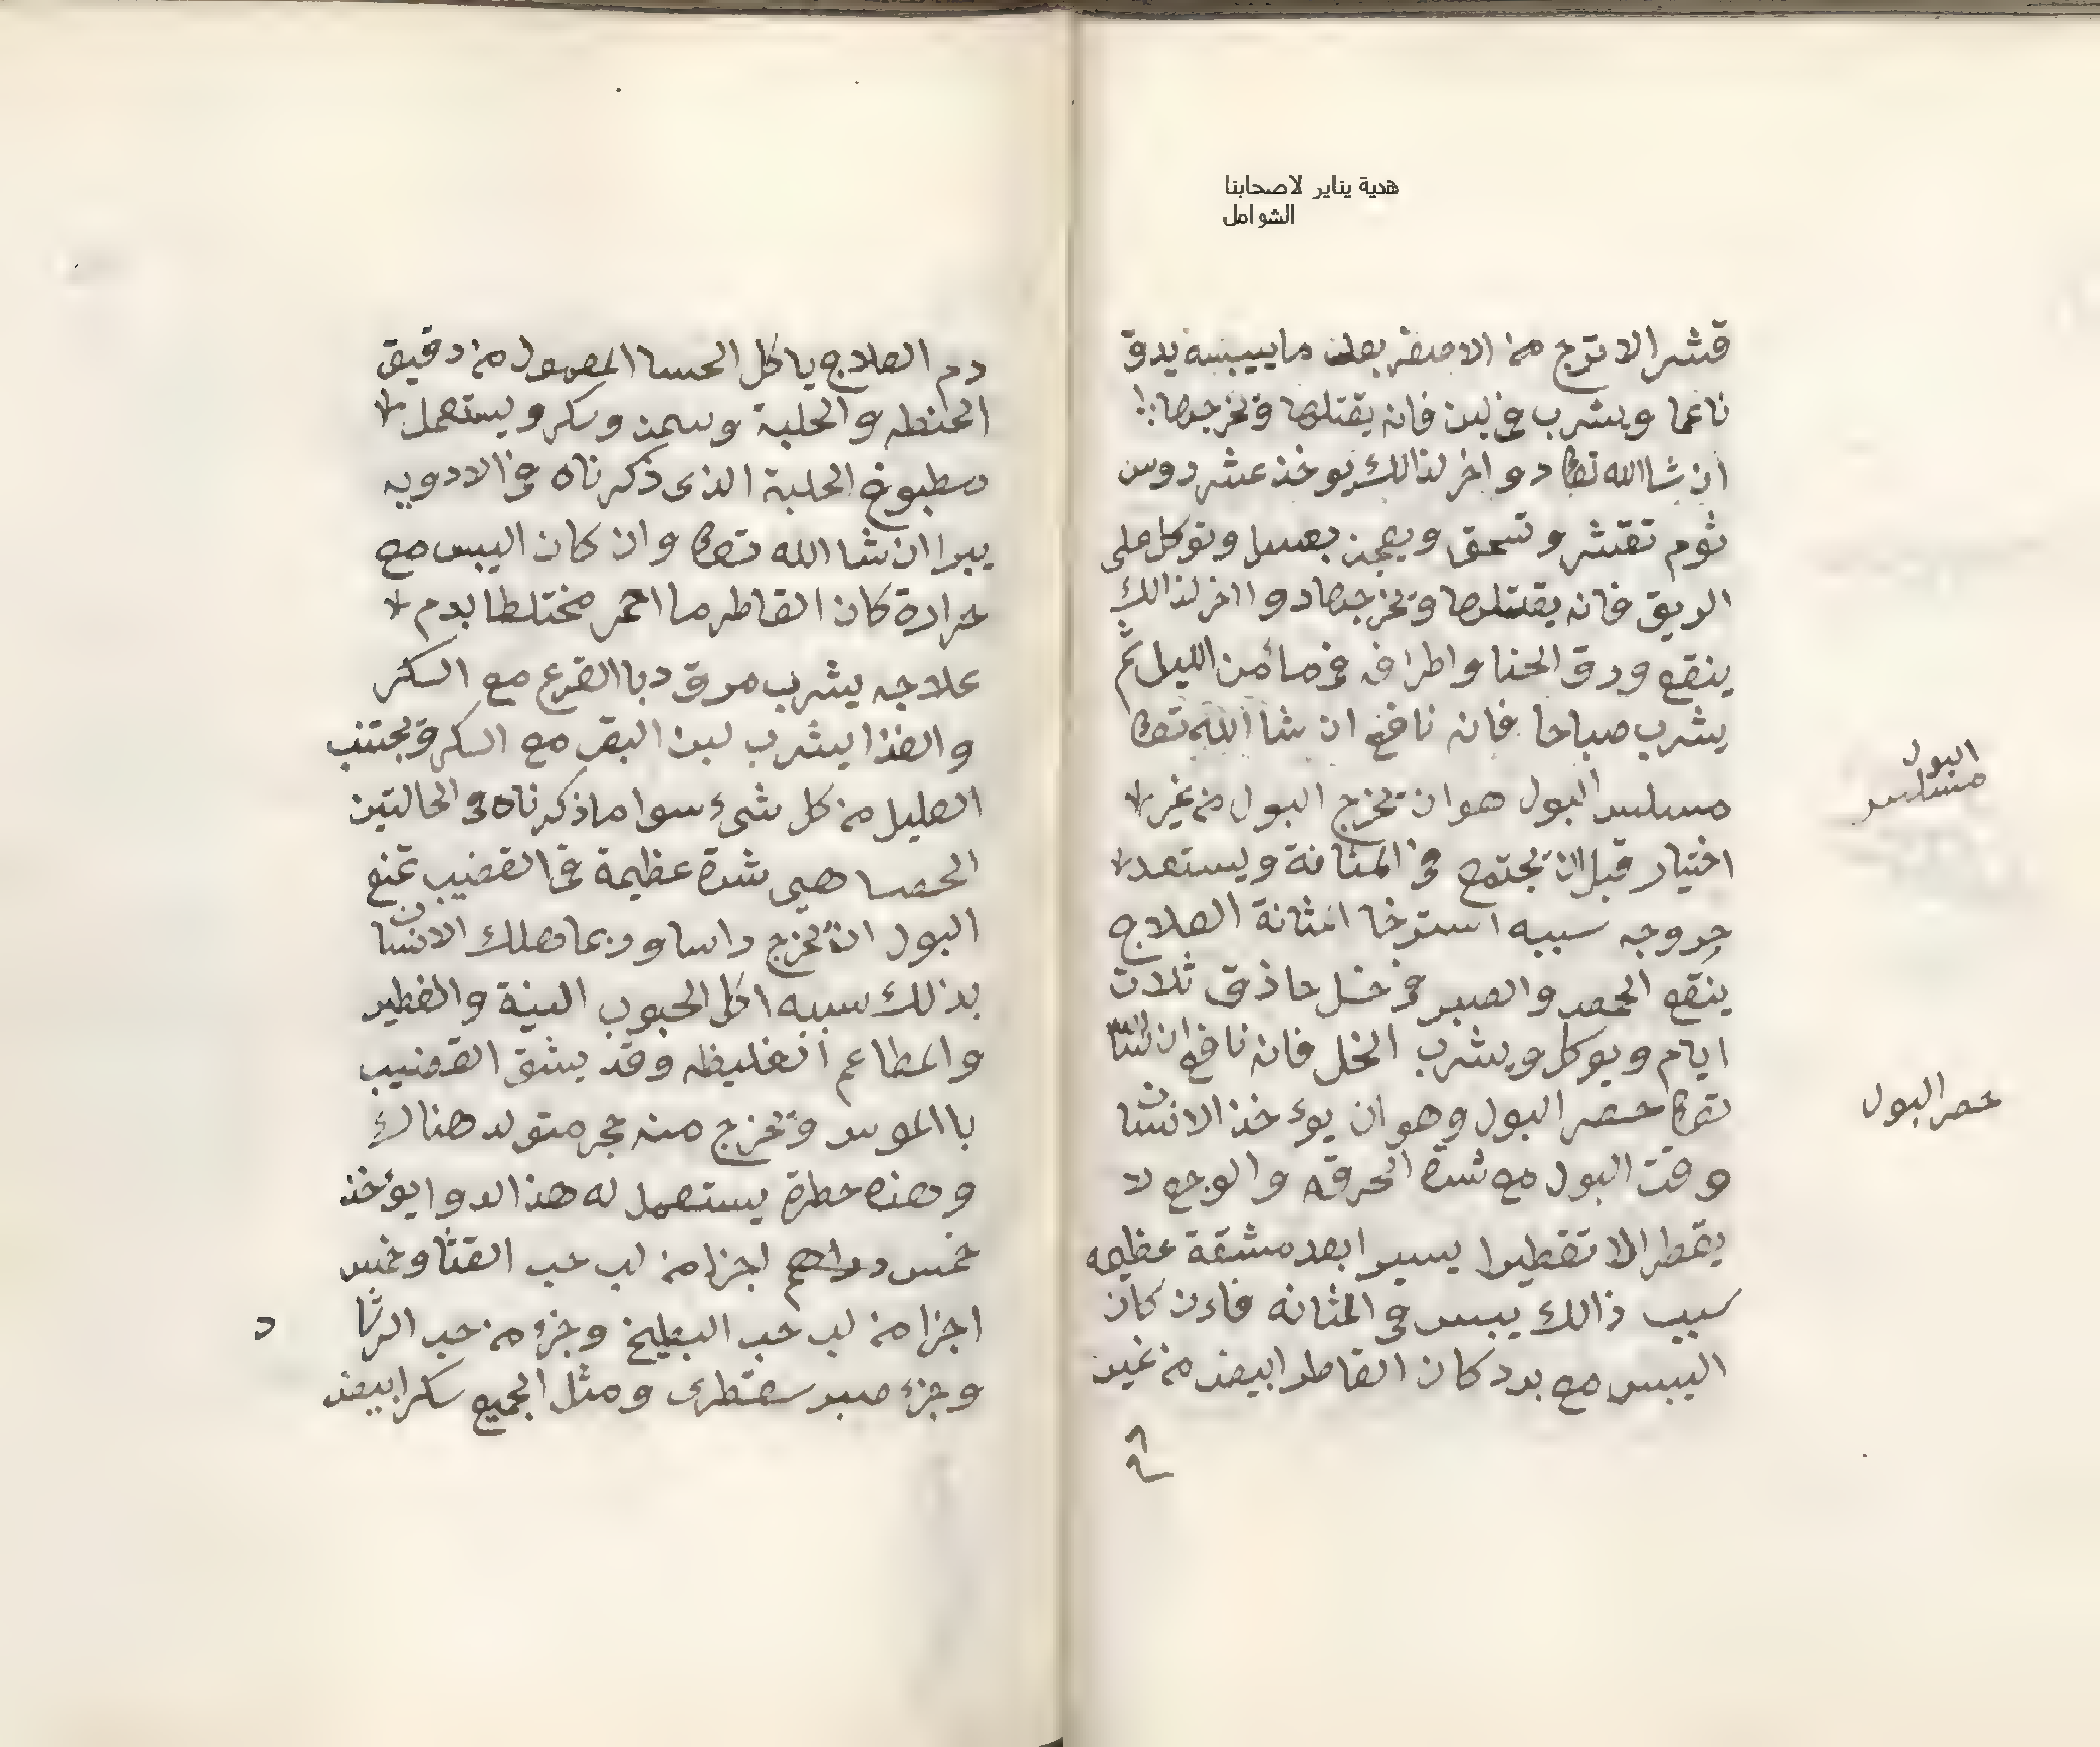 هدية يناير لاصحابنا
الشوامل
قشر الاترج من الاصفر بعد ما ييبسه يدق
ناعما ويشرب في لبن فانه يقتلها وتخرجها
ان شا الله تعا دوا اخر لذالك يوخذ عشر روس
ثوم تقشر وتسحق ويعجن بعسل وتوكل على
الريق فانه يقتلها وتخرجها دوا اخر لذالك
ينقع ورق الحنا واطرافه في ماء من الليل ثم
يشرب صباحا فانه نافع ان شا الله تعا
مسلسل البول هو ان تخرج البول من غير
اختيار قبل ان تجتمع في المثانة ويستعد
خروجه سببه استرخا المثانة العلاج
ينقع الحمص والصبر في خل حاذق ثلاث
ايام ويوكل ويشرب الخل فانه نافع ان شا الله
تعا حصر البول وهو ان يوءخذ الانسان
وقت البول مع شدة الحرقه والوجع لا
يقطر الا تقطيرا يسيرا بعد مشقة عظيمه
سبب ذالك يبس في المثانه فاءن كان
اليبس مع برد كان القاطر ابيض من غير
البول
مسلسل
حصر البول
دم العلاج ياكل الحسا المعمول من دقيق
الحنطه والحلبة وسمن وسكر ويستعمل
مطبوخ الحلبة الذى ذكرناه في الادويه
يبرا ان شا الله تعا وان كان اليبس مع
حرارة كان القاطر ما احمر مختلطا بدم
علاجه يشرب مرق دبا القرع مع السكر
والغذا يشرب لبن البقر مع السكر وتجتنب
العليل من كل شيء سوا ما ذكرناه في الحالتين
الحصا هي شدة عظيمة في القضيب تمنع
البول ان تخرج راسا وربما هلك الانسان
بذلك سببه اكل الحبوب النية والفطير
والمطاعم الغليظه وقد يشق القضيب
باالموس وتخرج منه حجر متولد هناك
وهذه خطرة يستعمل له هذا الدوا يؤخذ
خمس دراهم اجزا من لب حب القثا وخمس
اجزا من لب حب البطيخ وجزء من حب الرشا
د
وجزء صبر سقطرى ومثل الجميع سكر ابيض